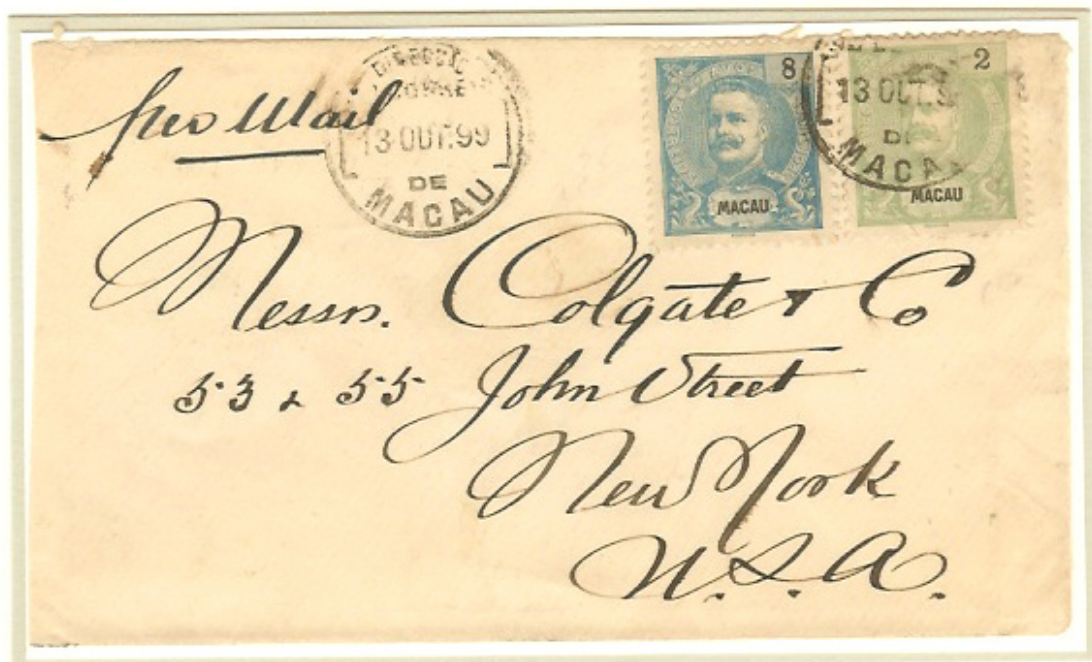 per Mail
DIRECÇÃO
CORRE
13 OUT. 99
DE
MACAU
8
MACAU
2
13 OUT. 9
DE
MACA
MACAU
Messrs. Colgate & Co
53 & 55 John Street
New York
U.S.A.